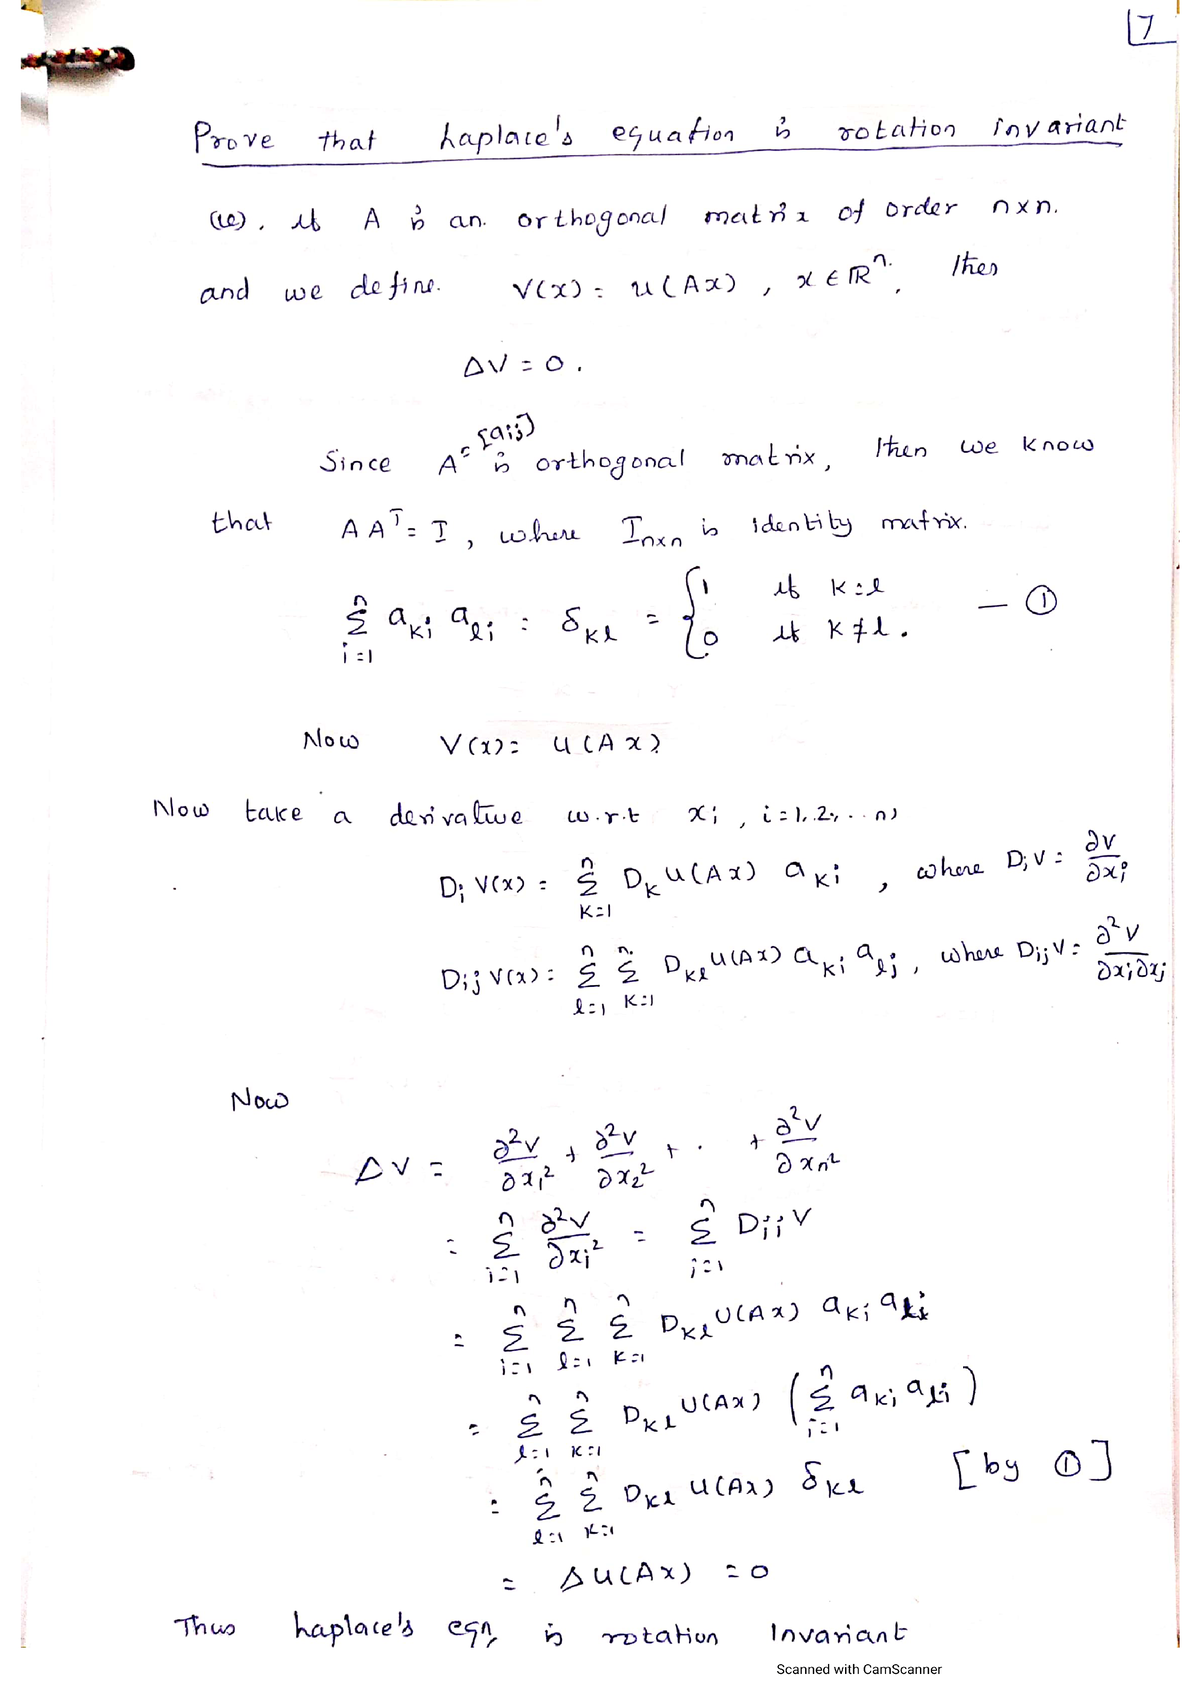 7
Prove that Laplace's equation is rotation invariant
(ie). if A is an. orthogonal matrix of order n×n.
and we define. V(x) = u(Ax), x ∈ ℝⁿ. then
ΔV = 0.
Since A = [aij] is orthogonal matrix, then we know
that A Aᵀ = I, where Iₙₓₙ is identity matrix.
∑_{i=1}^{n} a_{ki} a_{li} = δ_{kl} = { 1 if k=l, 0 if k≠l. — ①
Now V(x) = u(Ax)
Now take a derivative w.r.t xᵢ, i = 1, 2, .. n,
Dᵢ V(x) = ∑_{k=1}^{n} D_k u(Ax) a_{ki}, where DᵢV = ∂V/∂xᵢ
D_{ij} V(x) = ∑_{l=1}^{n} ∑_{k=1}^{n} D_{kl} u(Ax) a_{ki} a_{lj}, where D_{ij}V = ∂²V/∂xᵢ∂xⱼ
Now
ΔV = ∂²V/∂x₁² + ∂²V/∂x₂² + . + ∂²V/∂xₙ²
= ∑_{i=1}^{n} ∂²V/∂xᵢ² = ∑_{i=1}^{n} D_{ii} V
= ∑_{i=1}^{n} ∑_{l=1}^{n} ∑_{k=1}^{n} D_{kl} u(Ax) a_{ki} a_{li}
= ∑_{l=1}^{n} ∑_{k=1}^{n} D_{kl} u(Ax) (∑_{i=1}^{n} a_{ki} a_{li})
= ∑_{l=1}^{n} ∑_{k=1}^{n} D_{kl} u(Ax) δ_{kl} [by ①]
= Δu(Ax) = 0
Thus Laplace's eqn, is rotation Invariant
Scanned with CamScanner